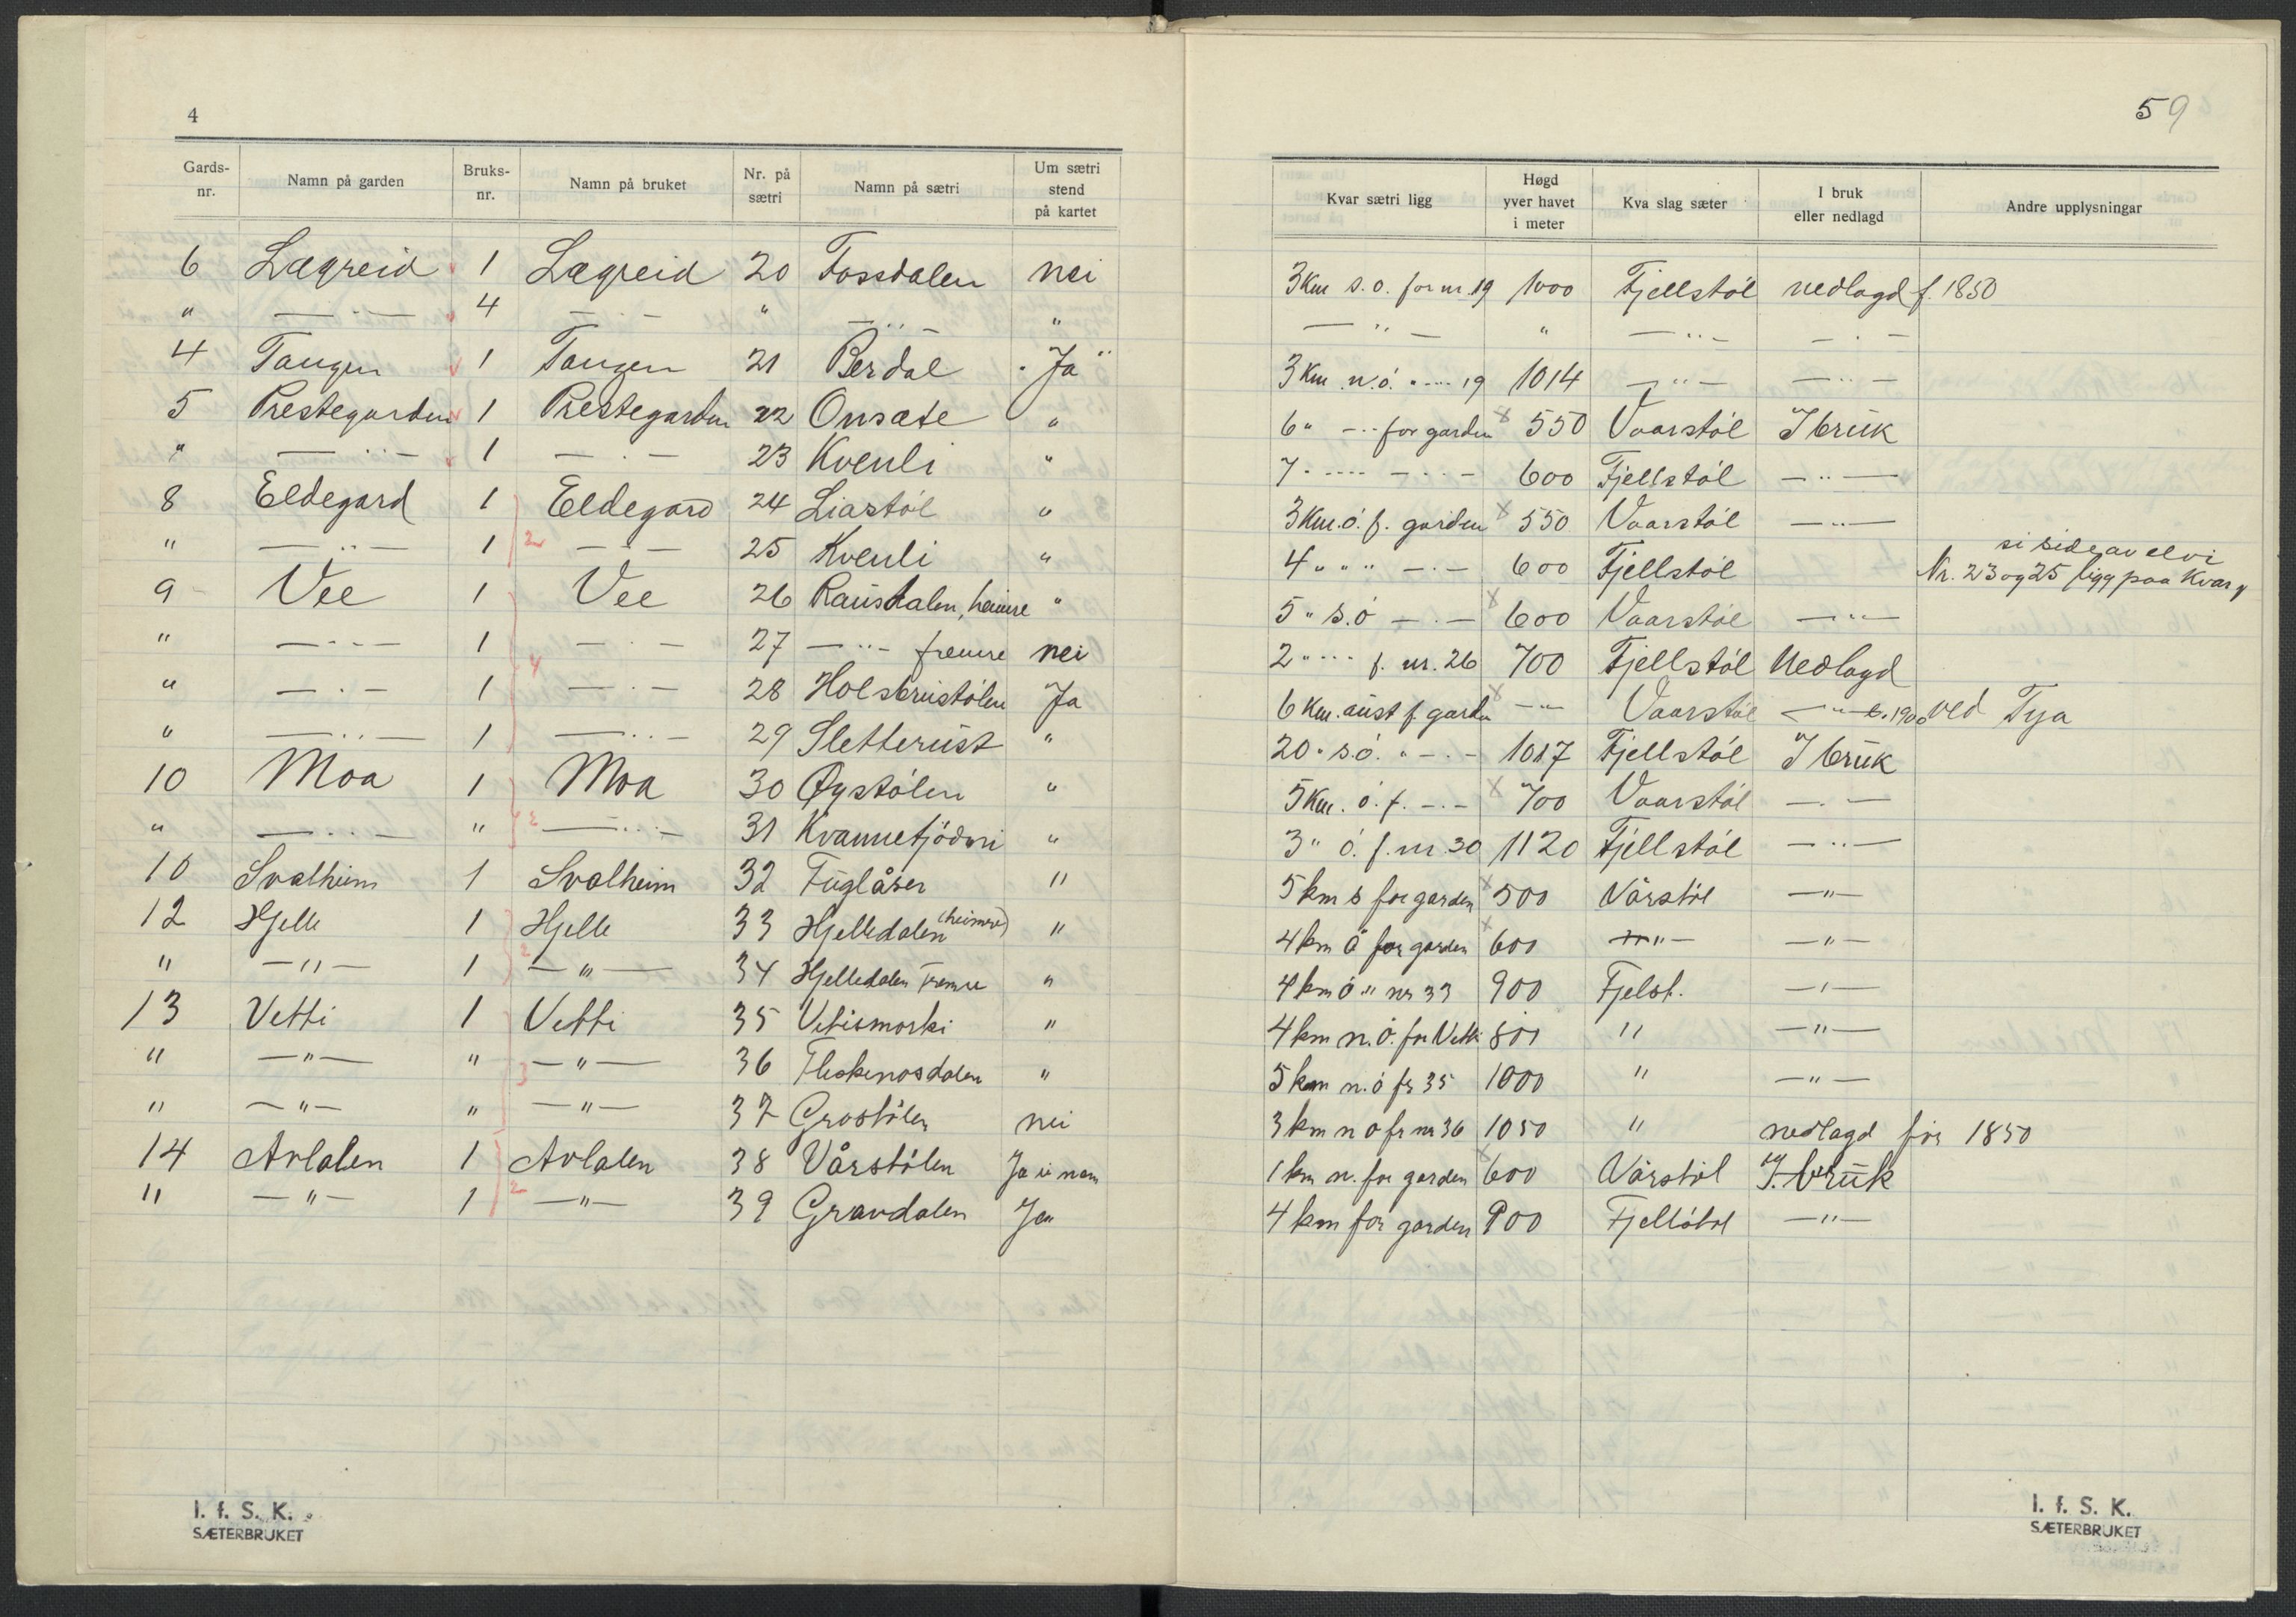 4
Gards-nr. Namn på garden Bruks-nr. Namn på bruket Nr. på sætri Namn på sætri Um sætri stend på kartet
6 Lægreid 1 Lægreid 20 Fossdalen nei
" — " — 4 — " — " — " — "
4 Tangen 1 Tangen 21 Berdal Ja
5 Prestegarden 1 Prestegarden 22 Onsæte "
" — " — 1 — " — 23 Kvenli "
8 Eldegard 1 Eldegard 24 Liastöl "
" — " — 1 2 — " — 25 Kvenli "
9 Vee 1 Vee 26 Rausdalen, heimre "
" — " — 1 — " — 27 — " — fremre nei
" — " — 1 4 — " — 28 Holsbrustölen Ja
" — " — 1 — " — 29 Sletterust "
10 Moa 1 Moa 30 Øystölen "
" — " — " 2 — " — 31 Kvannetjödni "
10 Svalheim 1 Svalheim 32 Fuglåser "
12 Hjelle 1 Hjelle 33 Hjelledalen (heimre) "
" — " — 1 2 — " — 34 Hjelledalen fremre "
13 Vetti 1 Vetti 35 Vetismorki "
" — " — " 3 — " — 36 Fleskenosdalen "
" — " — " — " — 37 Grostölen nei
14 Avdalen 1 Avdalen 38 Vårstölen Ja
" — " — 1 2 — " — 39 Gravdalen Ja
I. f. S. K.
SÆTERBRUKET
59
Kvar sætri ligg Høgd yver havet i meter Kva slag sæter I bruk eller nedlagd Andre upplysningar
3 Km s.o. for nr. 19 1000 Fjellstöl nedlagd f. 1850
— " — " — " — — " —
3 Km n.ö. " — " 19 1014 — " — — " —
6 " — " — for garden x 550 Vaarstöl I bruk
7 " — " — " — 600 Fjellstöl — " —
3 Km. ö. f. garden x 550 Vaarstöl — " —
4 " " " — " — 600 Fjellstöl Nr. 23 og 25 ligg paa kvar si side av elvi
5 " s.ö — " — x 600 Vaarstöl — " —
2 " — " f. nr. 26 700 Fjellstöl Nedlagd
6 Km. aust f. garden x — " — Vaarstöl — " — 1900 ved Tya
20 " s.ö. " — " — 1017 Fjellstöl I bruk
5 Km. ö. f. — " — x 700 Vaarstöl — " —
3 " ö. f. nr. 30 1120 Fjellstöl — " —
5 km s for garden x 500 Vårstöl — " —
4 km ö for garden x 600 — " — — " —
4 km ö " nr 33 900 Fjelst. — " —
4 km n.ö. for Vetti 800 " — " —
5 km n.ö fr 35 1000 " — " —
3 km n ö fr nr 36 1050 " nedlagd för 1850
1 km n. for garden x 600 Vårstöl I bruk
4 km for garden 900 Fjellstöl — " —
I. f. S. K.
SÆTERBRUKET